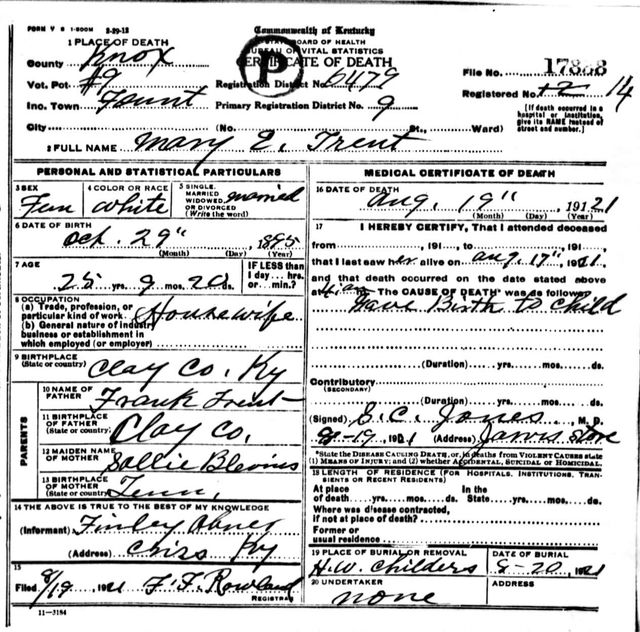 FORM V S 1-500M 2-29-12
Commonwealth of Kentucky
STATE BOARD OF HEALTH
BUREAU OF VITAL STATISTICS
CERTIFICATE OF DEATH
P
1 PLACE OF DEATH
County Knox
Vot. Pct #9
Inc. Town Fount
City
Registration District No. 6479
Primary Registration District No. 9
(No. St., Ward)
File No. 17888
Registered No. 14
[If death occurred in a hospital or institution, give its NAME instead of street and number.]
2 FULL NAME Mary E. Trent
PERSONAL AND STATISTICAL PARTICULARS
3 SEX Fem
4 COLOR OR RACE white
5 SINGLE, MARRIED WIDOWED, OR DIVORCED (Write the word) married
6 DATE OF BIRTH Oct. 29" 1895
(Month) (Day) (Year)
7 AGE 25 yrs. 9 mos. 20 ds.
IF LESS than 1 day ... hrs. or ... min.?
8 OCCUPATION
(a) Trade, profession, or particular kind of work Housewife
(b) General nature of industry business or establishment in which employed (or employer)
9 BIRTHPLACE (State or country) Clay Co. Ky
PARENTS
10 NAME OF FATHER Frank Trent
11 BIRTHPLACE OF FATHER (State or country) Clay Co.
12 MAIDEN NAME OF MOTHER Sallie Blevins
13 BIRTHPLACE OF MOTHER (State or country) Tenn.
14 THE ABOVE IS TRUE TO THE BEST OF MY KNOWLEDGE
(Informant) Finley Abner
(Address) Ky
15 Filed 8/19 1921 F. F. Rowland
REGISTRAR
11-3184
MEDICAL CERTIFICATE OF DEATH
16 DATE OF DEATH Aug. 19" 1921
(Month) (Day) (Year)
17 I HEREBY CERTIFY, That I attended deceased
from , 191 , to , 191 ,
that I last saw her alive on Aug 17" 1921
and that death occurred on the date stated above
at 4 am The CAUSE OF DEATH* was as follows
Gave Birth to Child
(Duration) yrs. mos. ds.
Contributory
(SECONDARY)
(Duration) yrs. mos. ds.
(Signed) S. C. Jones, M. D.
8-19 1921 (Address) Jarvis Store
*State the DISEASE CAUSING DEATH, or, in deaths from VIOLENT CAUSES state (1) MEANS OF INJURY; and (2) whether ACCIDENTAL, SUICIDAL or HOMICIDAL.
18 LENGTH OF RESIDENCE (FOR HOSPITALS, INSTITUTIONS, TRANSIENTS OR RECENT RESIDENTS)
At place of death yrs. mos. ds. In the State yrs. mos. ds.
Where was disease contracted, if not at place of death?
Former or usual residence
19 PLACE OF BURIAL OR REMOVAL H. W. Childers
DATE OF BURIAL 8-20, 1921
20 UNDERTAKER none
ADDRESS